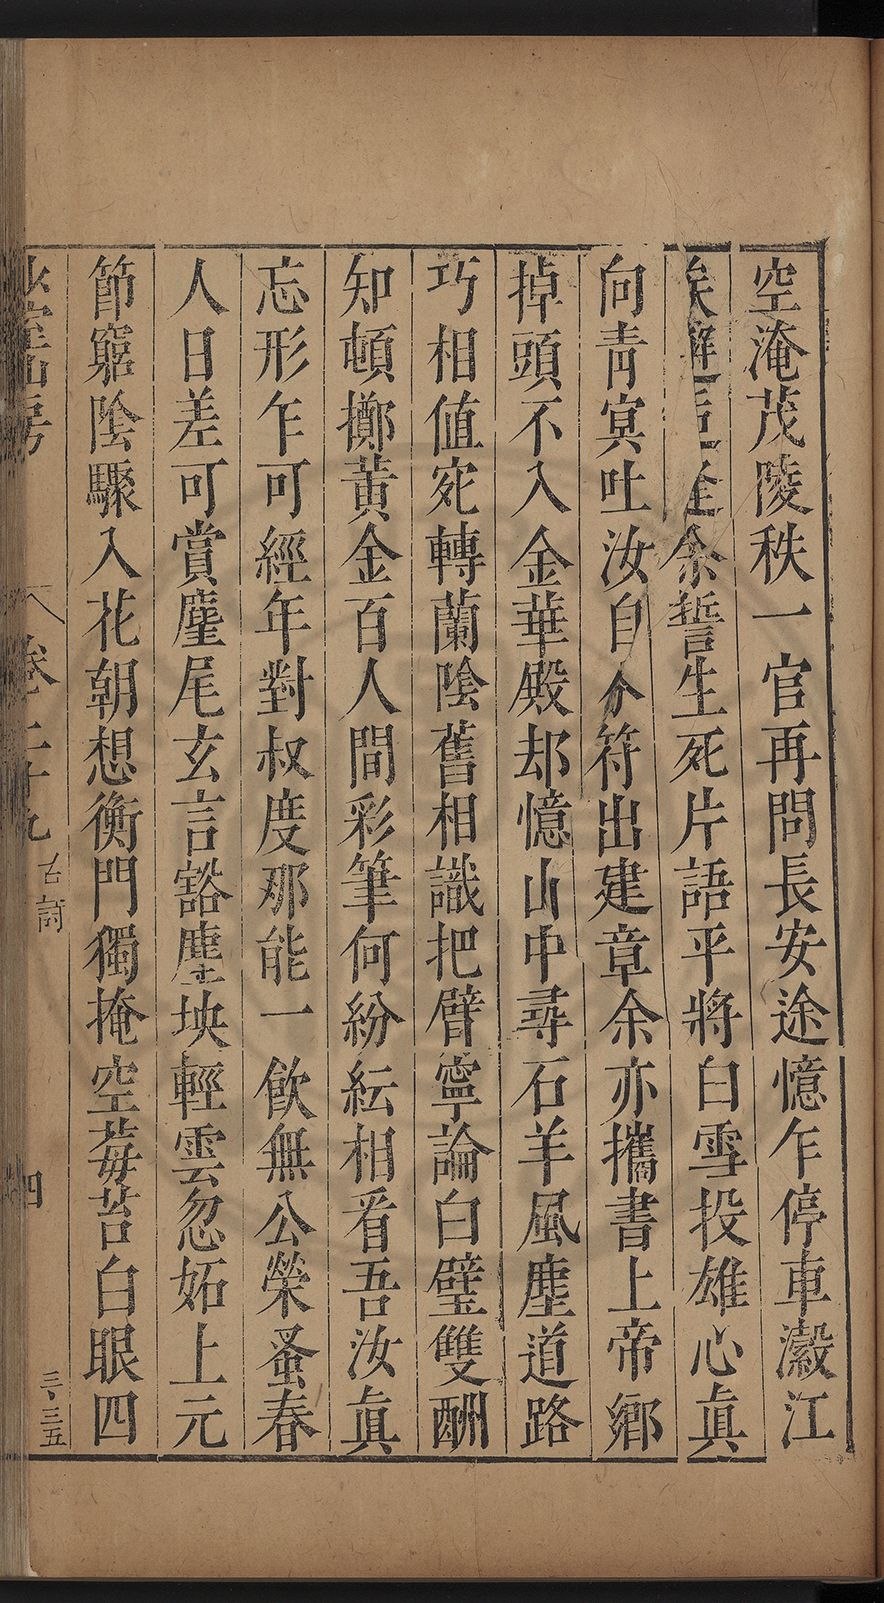 空淹茂陵秩一官再問長安途憶乍停車瀫江
余誓生死片語平將白雪投雄心真
向青冥吐汝自分符出建章余亦攜書上帝鄉
掉頭不入金華殿却憶山中尋石羊風塵道路
巧相值宛轉蘭陰舊相識把臂寧論白璧雙酬
知頓擲黃金百人間彩筆何紛紜相看吾汝真
忘形乍可經年對叔度那能一飲無公榮蚤春
人日差可賞麈尾玄言豁塵坱輕雲忽妬上元
節窮陰驟入花朝想衡門獨掩空莓苔白眼四
山房
卷二十九
古詩
四
三·三五